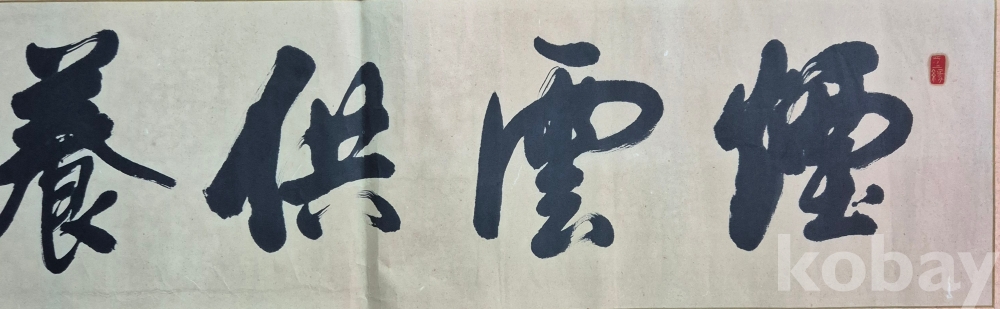 煙雲供養
kobay